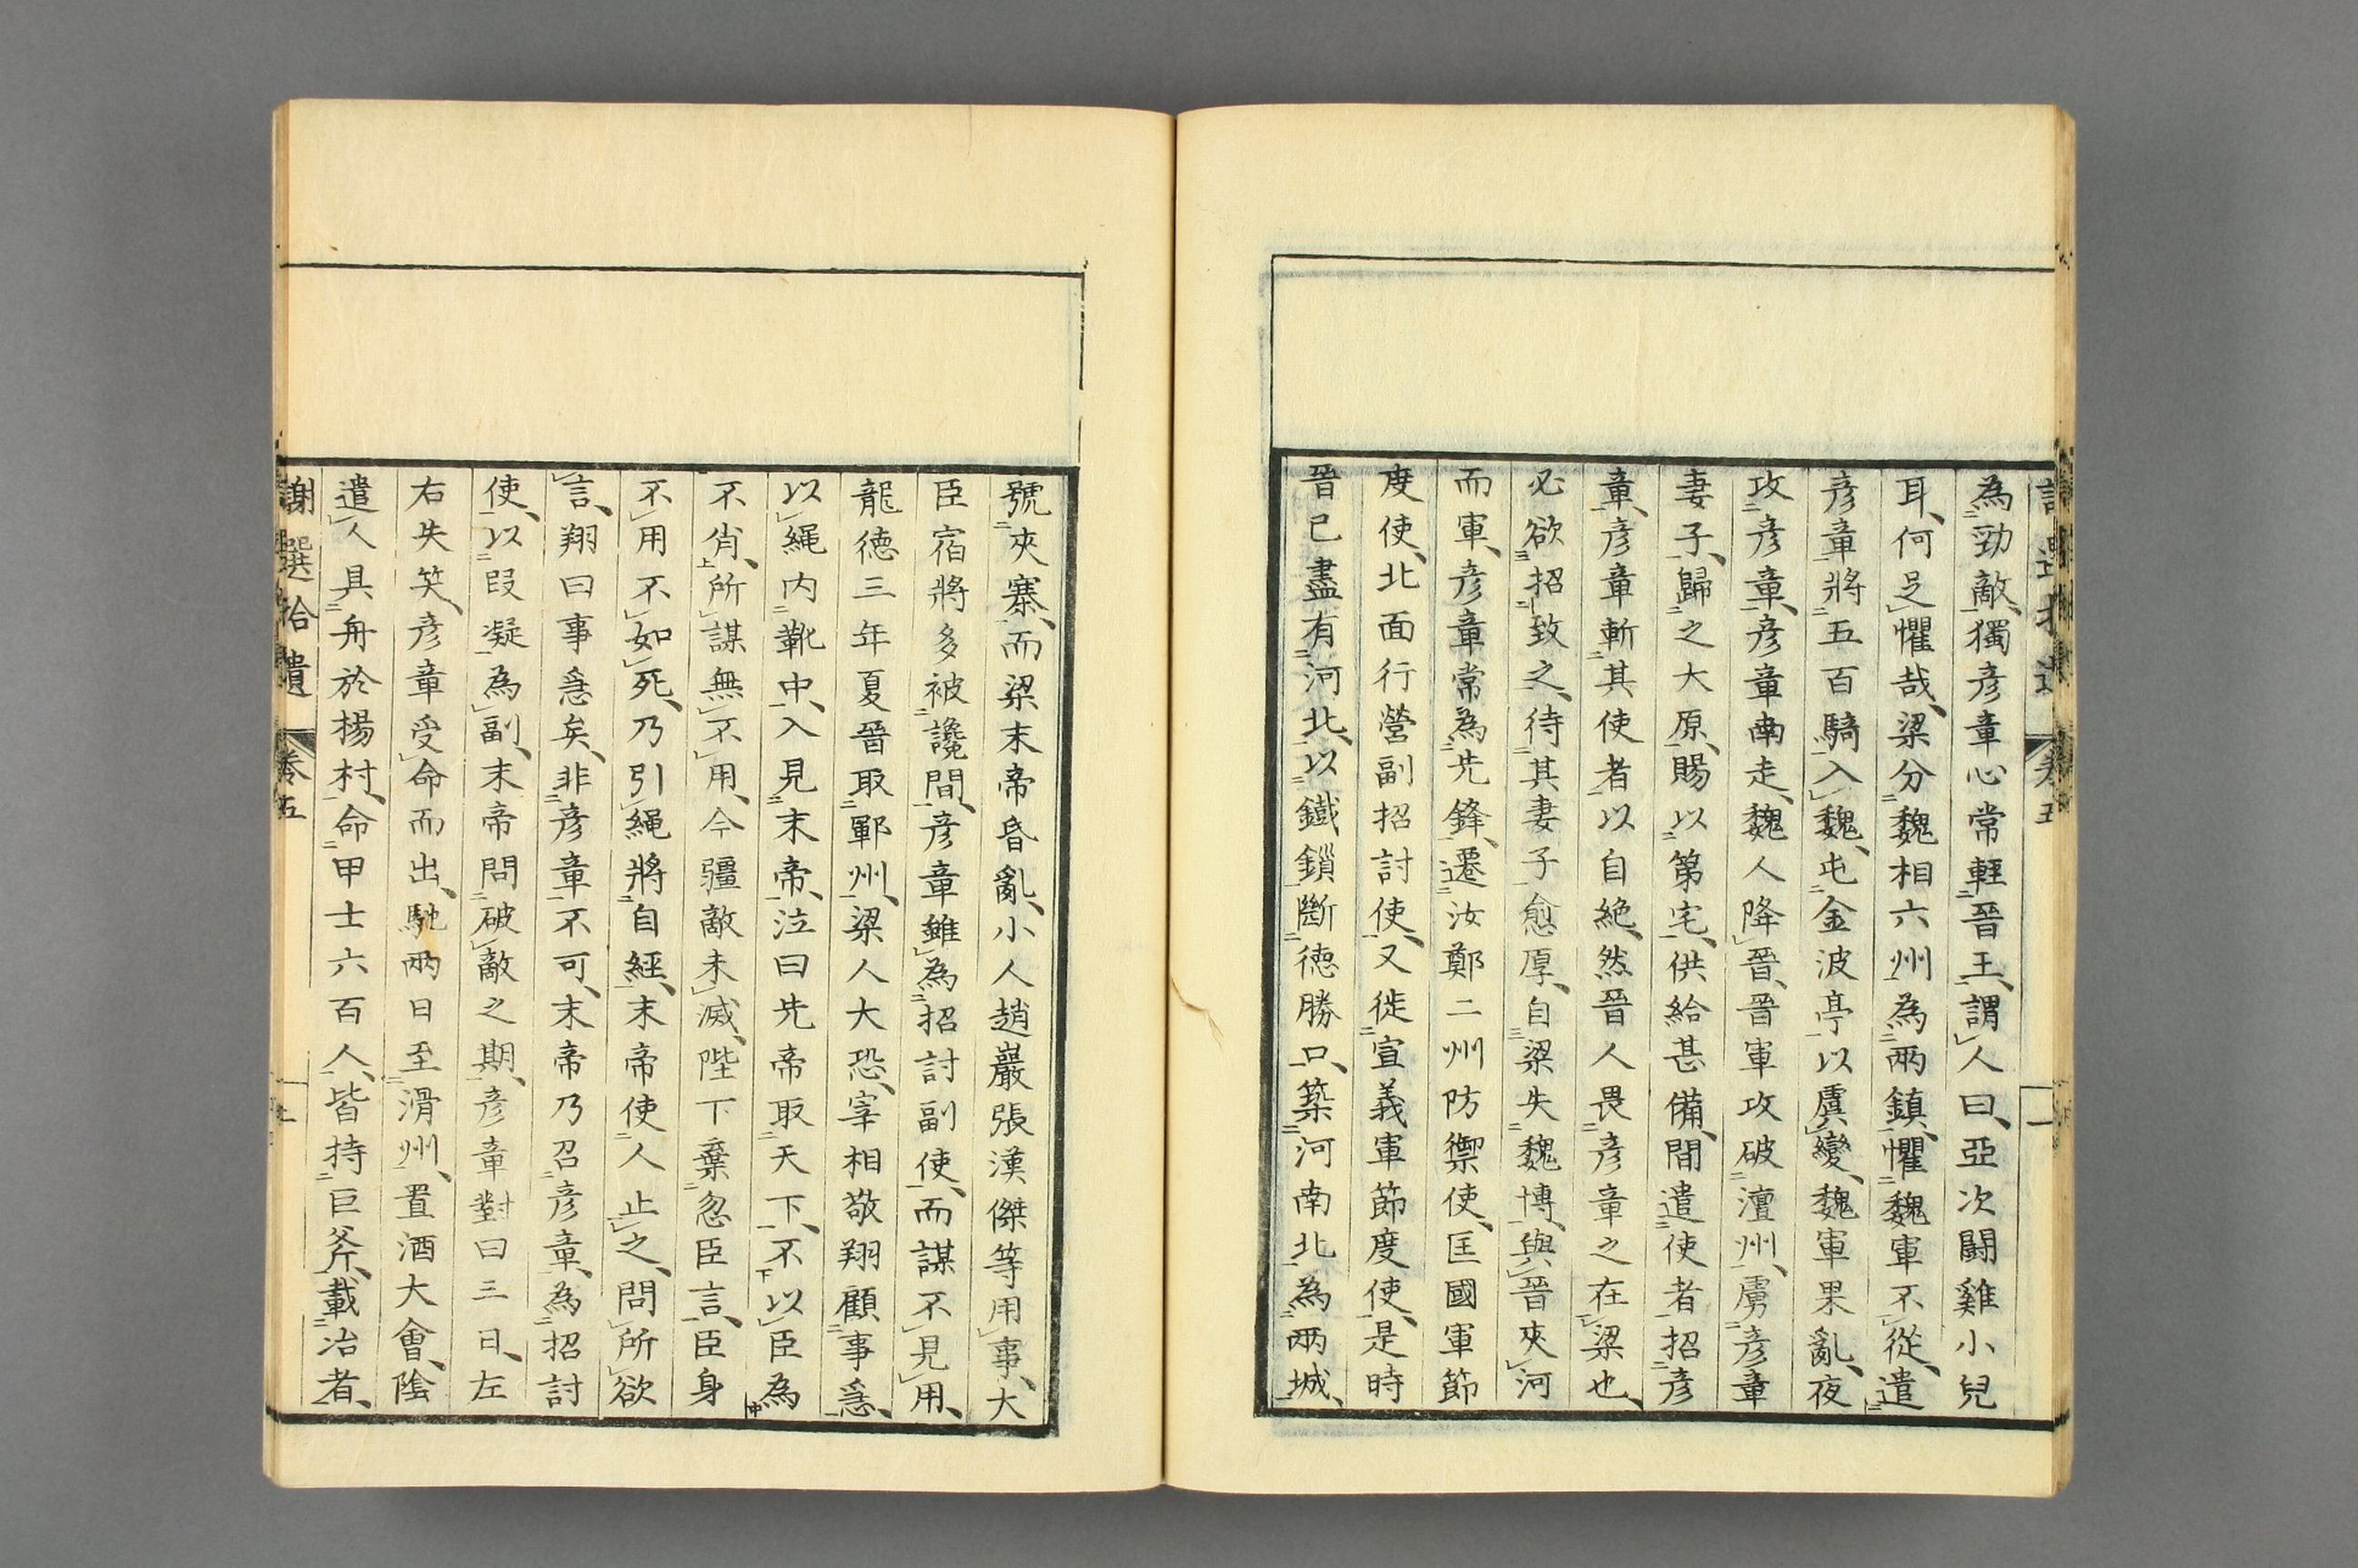 為勁敵、獨彥章心常輕晉王、謂人曰、亞次鬪雞小兒
耳、何足懼哉、梁分魏相六州為兩鎮、懼魏軍不從、遣
彥章將五百騎入魏、屯金波亭以虞變、魏軍果亂、夜
攻彥章、彥章南走、魏人降晉、晉軍攻破澶州、虜彥章
妻子、歸之大原、賜以第宅、供給甚備、間遣使者招彥
章、彥章斬其使者以自絶、然晉人畏彥章之在梁也、
必欲招致之、待其妻子愈厚、自梁失魏博、與晉夾河
而軍、彥章常為先鋒、遷汝鄭二州防禦使、匡國軍節
度使、北面行營副招討使、又徙宣義軍節度使、是時
晉已盡有河北、以鐵鎖斷德勝口、築河南北為兩城、
號夾寨、而梁末帝昏亂、小人趙巖張漢傑等用事、大
臣宿將多被讒間、彥章雖為招討副使、而謀不見用、
龍德三年夏晉取鄆州、梁人大恐、宰相敬翔顧事急、
以繩內靴中、入見末帝、泣曰先帝取天下、不以臣為
不肖、所謀無不用、今疆敵未滅、陛下棄忽臣言、臣身
不用不如死、乃引繩將自經、末帝使人止之、問所欲
言、翔曰事急矣、非彥章不可、末帝乃召彥章、為招討
使、以段凝為副、末帝問破敵之期、彥章對曰三日、左
右失笑、彥章受命而出、馳兩日至滑州、置酒大會、陰
遣人具舟於楊村、命甲士六百人、皆持巨斧、載冶者、
謝選拾遺 卷五